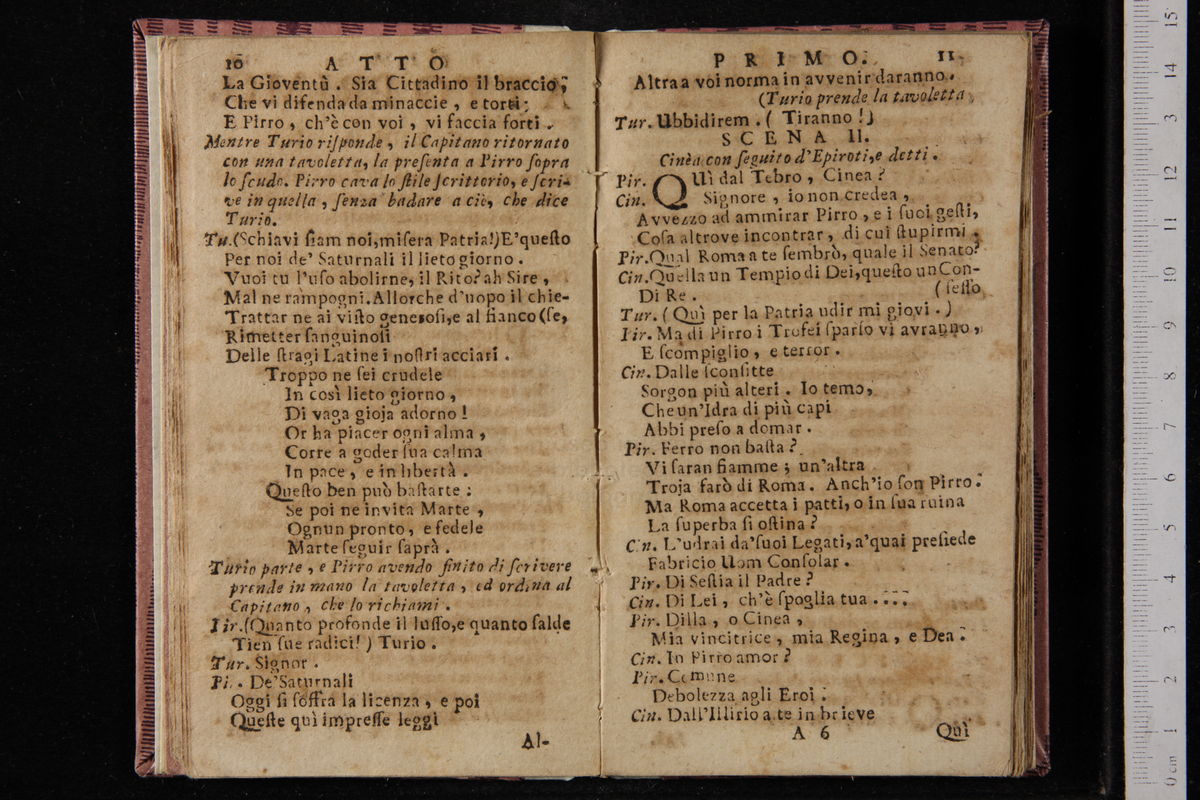 10 ATTO
La Gioventù . Sia Cittadino il braccio ;
Che vi difenda da minaccie , e torti ;
E Pirro , ch'è con voi , vi faccia forti .
Mentre Turio riſponde , il Capitano ritornato
con una tavoletta, la preſenta a Pirro ſopra
lo ſcudo. Pirro cava lo ſtile ſcrittorio, e ſcri-
ve in quella , ſenza badare a ciò, che dice
Turio.
Tu. (Schiavi ſiam noi,miſera Patria!)E'queſto
Per noi de' Saturnali il lieto giorno .
Vuoi tu l'uſo abolirne, il Rito? ah Sire ,
Mal ne rampogni. Allorche d'uopo il chie-
Trattar ne ai viſto generoſi,e al fianco (ſe,
Rimetter ſanguinoſi
Delle ſtragi Latine i noſtri acciari .
Troppo ne ſei crudele
In così lieto giorno ,
Di vaga gioja adorno !
Or ha piacer ogni alma ,
Corre a goder ſua calma
In pace , e in libertà .
Queſto ben può baſtarte :
Se poi ne invita Marte ,
Ognun pronto , e fedele
Marte ſeguir ſaprà .
Turio parte , e Pirro avendo finito di ſcrivere
prende in mano la tavoletta , ed ordina al
Capitano , che lo richiami .
Pir. (Quanto profonde il luſſo,e quanto ſalde
Tien ſue radici! ) Turio .
Tur. Signor .
Pi. . De'Saturnali
Oggi ſi ſoffra la licenza , e poi
Queſte quì impreſſe leggi
Al-
PRIMO. 11
Altra a voi norma in avvenir daranno.
(Turio prende la tavoletta
Tur. Ubbidirem . ( Tiranno !)
SCENA II.
Cinèa con ſeguito d'Epiroti,e detti .
Pir. QUì dal Tebro , Cinea ?
Cin. Signore , io non credea ,
Avvezzo ad ammirar Pirro , e i ſuoi geſti,
Coſa altrove incontrar , di cui ſtupirmi .
Pir. Qual Roma a te ſembrò, quale il Senato?
Cin. Quella un Tempio di Dei,queſto un Con-
Di Re . (ſeſſo
Tur. ( Quì per la Patria udir mi giovi . )
Pir. Ma di Pirro i Trofei ſparſo vi avranno ,
E ſcompiglio , e terror .
Cin. Dalle ſconfitte
Sorgon più alteri . Io temo,
Che un'Idra di più capi
Abbi preſo a domar .
Pir. Ferro non baſta ?
Vi ſaran fiamme ; un'altra
Troja farò di Roma . Anch'io ſon Pirro .
Ma Roma accetta i patti, o in ſua ruina
La ſuperba ſi oſtina ?
Cin. L'udrai da'ſuoi Legati, a'quai preſiede
Fabricio Uom Conſolar .
Pir. Di Seſtia il Padre ?
Cin. Di Lei , ch'è ſpoglia tua . . . .
Pir. Dilla , o Cinea ,
Mia vincitrice , mia Regina , e Dea .
Cin. In Pirro amor ?
Pir. Comune
Debolezza agli Eroi .
Cin. Dall'Illirio a te in brieve
A 6 Quì
0 cm 1 2 3 4 5 6 7 8 9 10 11 12 3 14 15